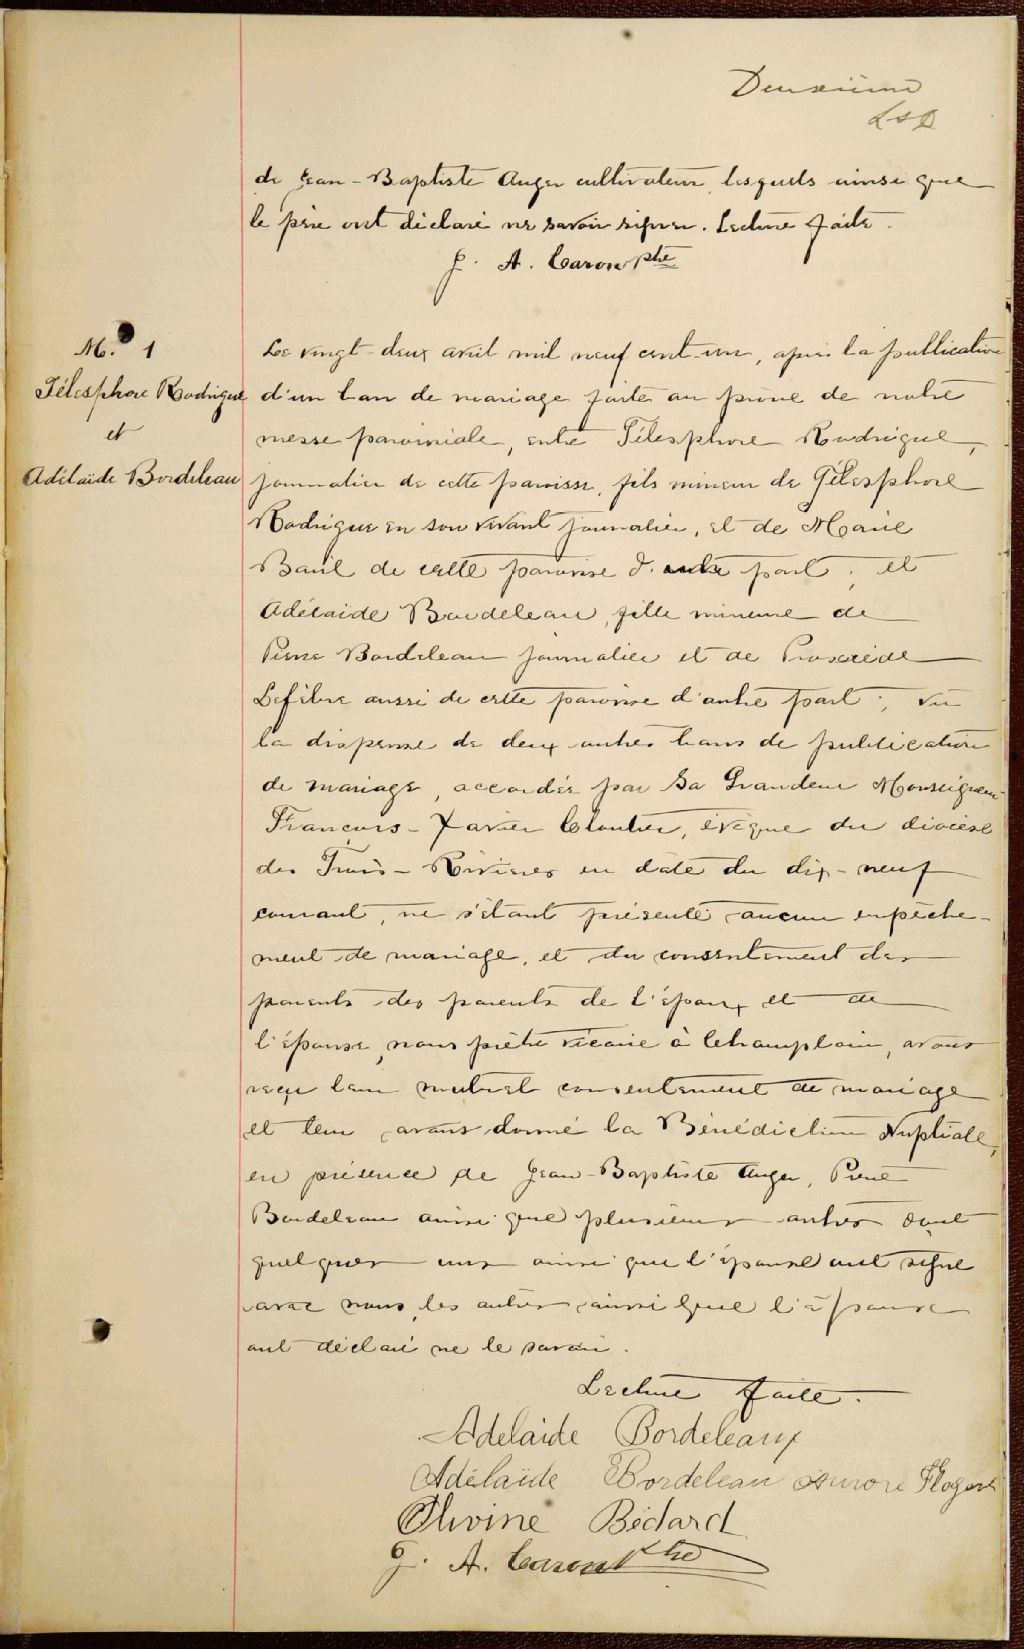 Deuxième
de Jean-Baptiste Auger cultivateur, lesquels ainsi que
le père ont déclaré ne savoir signer. Lecture faite.
J. A. Caron ptre
M. 1
Télesphore Rodrigue
et
Adélaïde Bordeleau
Le vingt-deux avril mil neuf cent-un, après la publication
d'un ban de mariage faite au prône de notre
messe paroissiale, entre Télesphore Rodrigue,
journalier de cette paroisse, fils mineur de Télesphore
Rodrigue en son vivant journalier, et de Marie
Baril de cette paroisse d'autre part; et
Adélaide Bordeleau, fille mineure de
Pierre Bordeleau journalier et de
Lefebvre aussi de cette paroisse d'autre part; vu
la dispense de deux autres bans de publication
de mariage, accordée par Sa Grandeur Monseigneur
François-Xavier Cloutier, évêque du diocèse
des Trois-Rivières en date du dix-neuf
courant, ne s'étant présenté aucun empêche-
ment de mariage, et du consentement des
parents des parents de l'époux et de
l'épouse, nous prêtre vicaire à Champlain, avons
reçu leur mutuel consentement de mariage
et leur avons donné la Bénédiction Nuptiale,
en présence de Jean-Baptiste Auger, Pierre
Bordeleau ainsi que plusieurs autres dont
quelques uns ainsi que l'épouse ont signé
avec nous, les autres ainsi que l'épouse
ont déclaré ne le savoir.
Lecture faite.
Adelaide Bordeleaux
Adélaïde Bordeleau Aurore
Olivine Bédard
J. A. Caron ptre